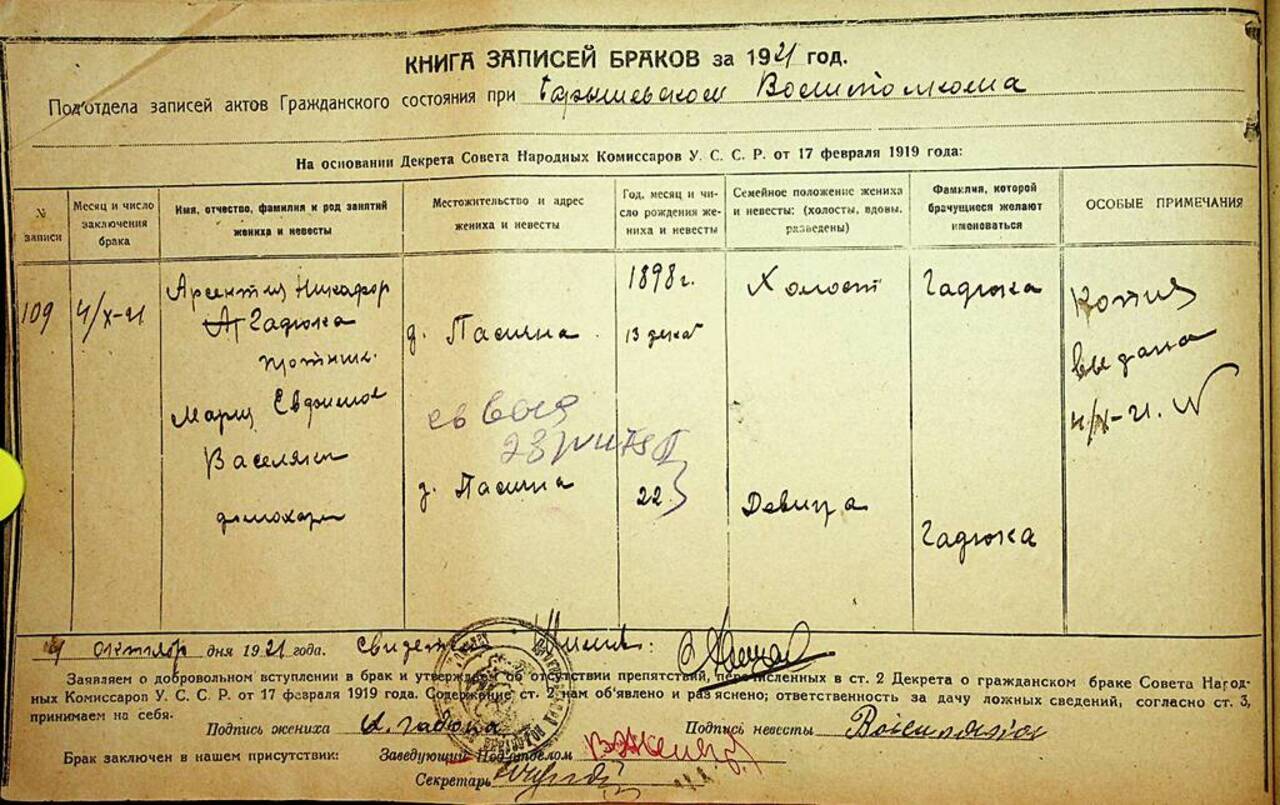 КНИГА ЗАПИСЕЙ БРАКОВ за 1921 год.
Под'отдела записей актов Гражданского состояния при Барышевском Волисполкома
На основании Декрета Совета Народных Комиссаров У. С. С. Р. от 17 февраля 1919 года:
№ записи
Месяц и число заключения брака
Имя, отчество, фамилия и род занятий жениха и невесты
Местожительство и адрес жениха и невесты
Год, месяц и число рождения жениха и невесты
Семейное положение жениха и невесты: (холосты, вдовы, разведены)
Фамилия, которой брачущиеся желают именоваться
ОСОБЫЕ ПРИМЕЧАНИЯ
109
4/X-21
Арсентий Никифор
Гадюка
плотник.
д. Пасична
1898 г.
13 декаб
Холост
Гадюка
Копия
выдана
4/X-21.
Мария Евфимов
домохоз
22
Девица
Гадюка
4 октября дня 1921 года.
Заявляем о добровольном вступлении в брак и утверждаем об отсутствии препятствий, перечисленных в ст. 2 Декрета о гражданском браке Совета Народ-
ных Комиссаров У. С. С. Р. от 17 февраля 1919 года. Содержание ст. 2 нам об'явлено и раз'яснено; ответственность за дачу ложных сведений, согласно ст. 3,
принимаем на себя.
Подпись жениха А. Гадюка Подпись невесты
Брак заключен в нашем присутствии: Заведующий Под'отделом
Секретарь